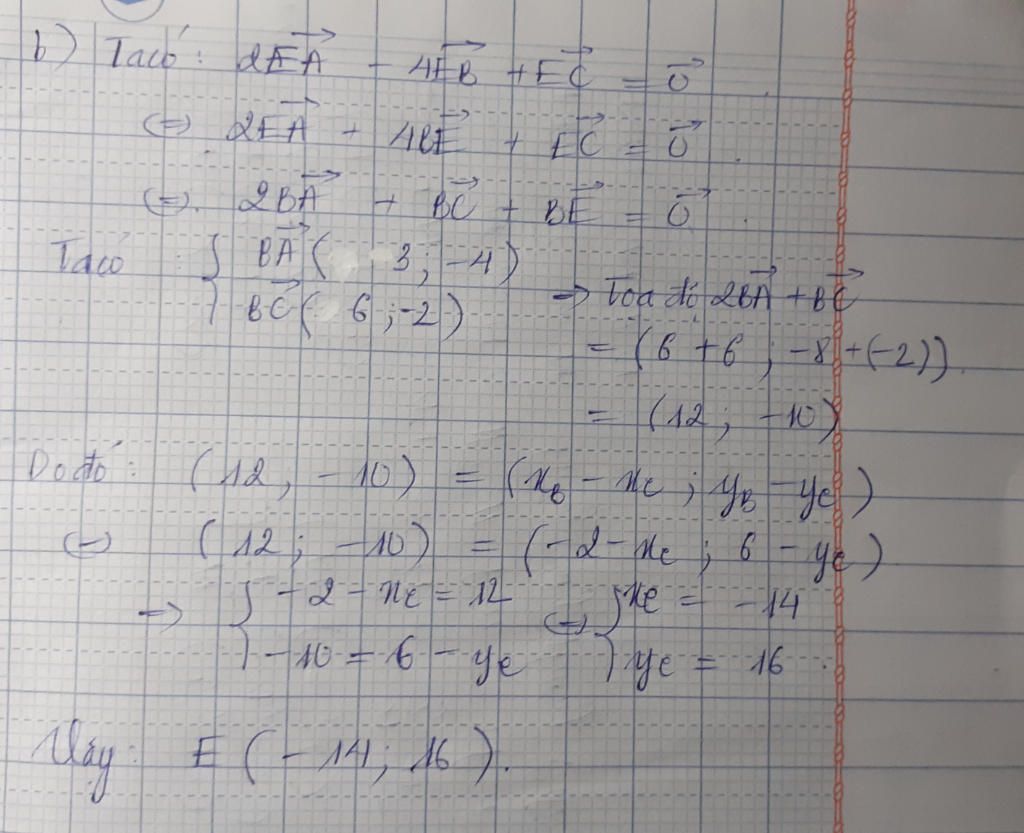 b) Ta có: 2EA⃗ - 4EB⃗ + EC⃗ = 0⃗
(=) 2EA⃗ + 4BE⃗ + EC⃗ = 0⃗.
(=). 2BA⃗ + BC⃗ + BE⃗ = 0⃗.
Ta có: { BA⃗ ( 3; -4)
BC⃗ ( 6; -2) → Tọa độ 2BA⃗ + BC⃗
= (6 + 6; -8 + (-2)).
= (12; -10)
Do đó: (12; -10) = (x_B - x_E; y_B - y_E)
(=) (12; -10) = (-2 - x_E; 6 - y_E).
→ { -2 - x_E = 12 (=) { x_E = -14
-10 = 6 - y_E y_E = 16.
Vậy: E (-14; 16).